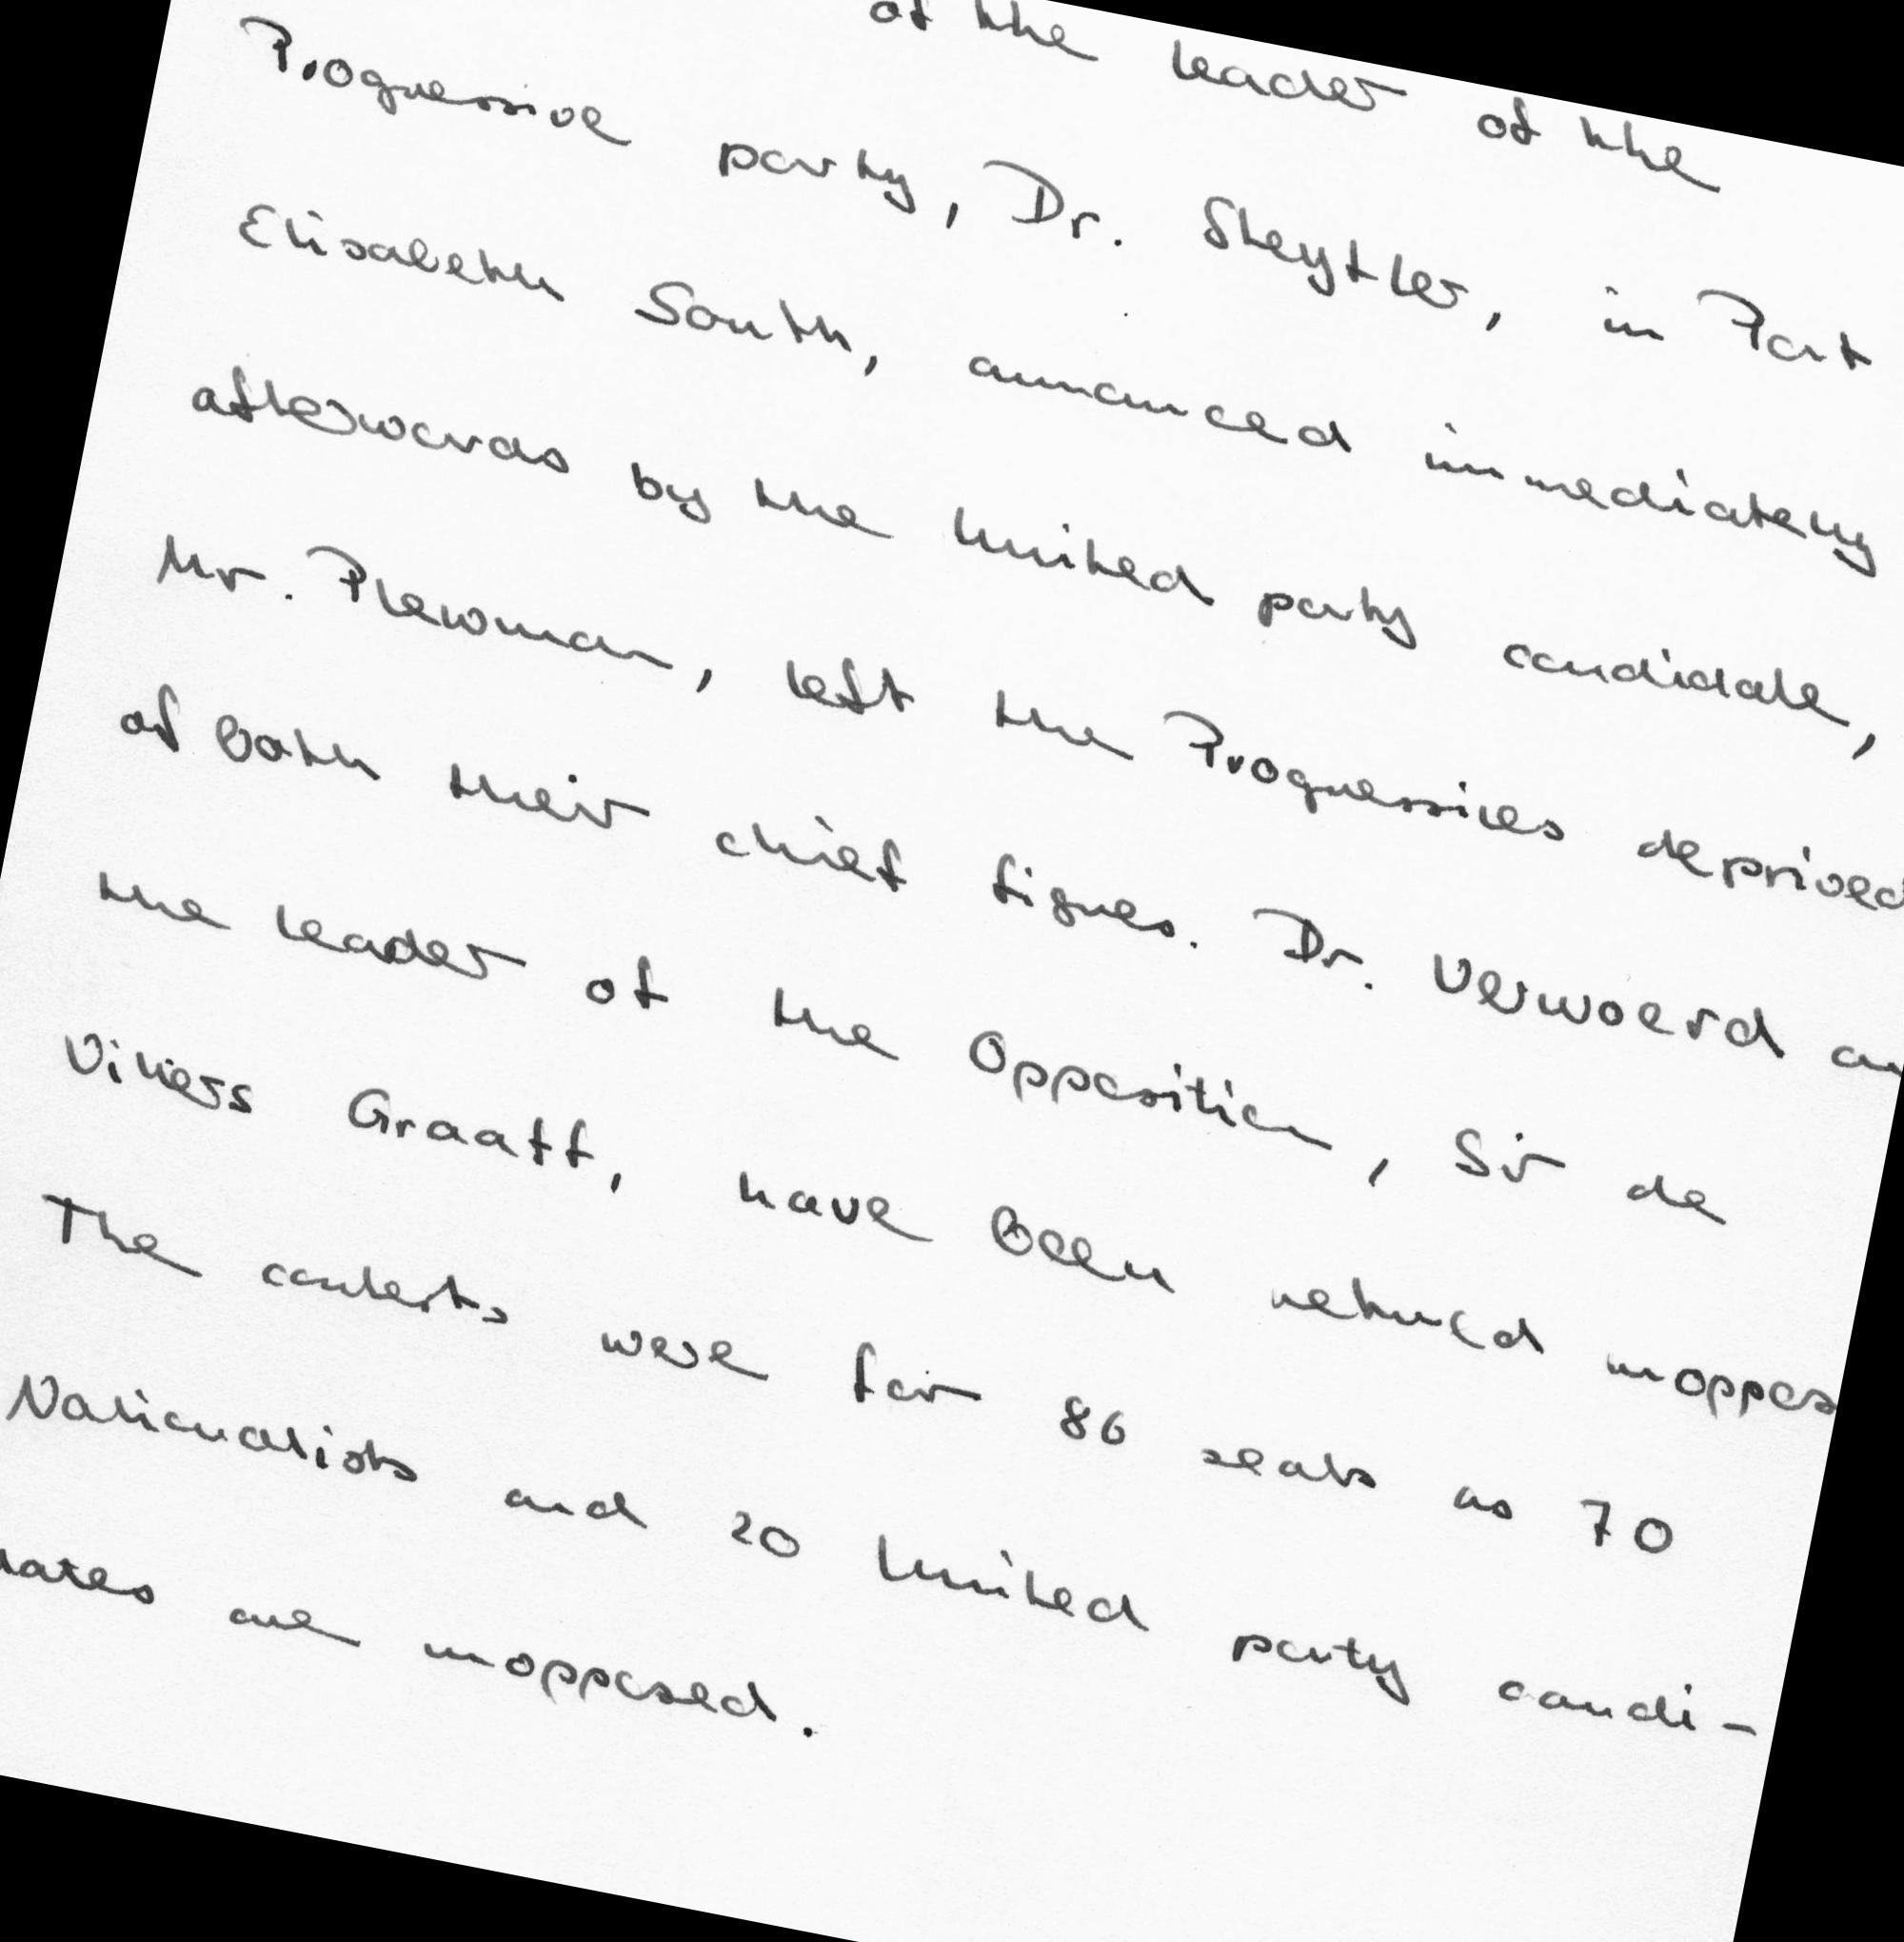 of the leader of the
Progressive party, Dr. Steytler, in Port
Elisabeth South, announced immediately
afterwards by the United party candidate,
Mr. Plewman, left the Progressives deprived
of both their chief figures. Dr. Verwoerd an
the leader of the Opposition, Sir de
Villiers Graaff, have been returned unoppos
The contests were for 86 seats as 70
Nationalists and 20 United party candi-
dates are unopposed.